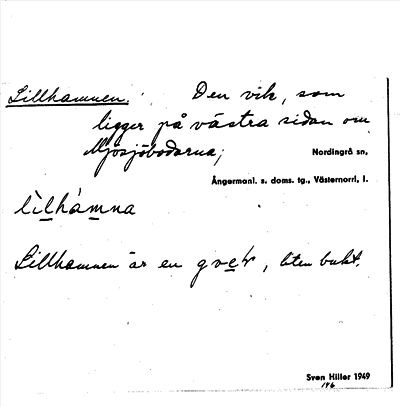 Lillhamnen. Den vik, som
ligger på västra sidan om
Mjösjöbodarna;
Nordingrå sn,
Ångermanl. s. doms. tg., Västernorrl. l.
lìlhámna
Lillhamnen är en gvek, liten bukt.
Sven Hiller 1949
196